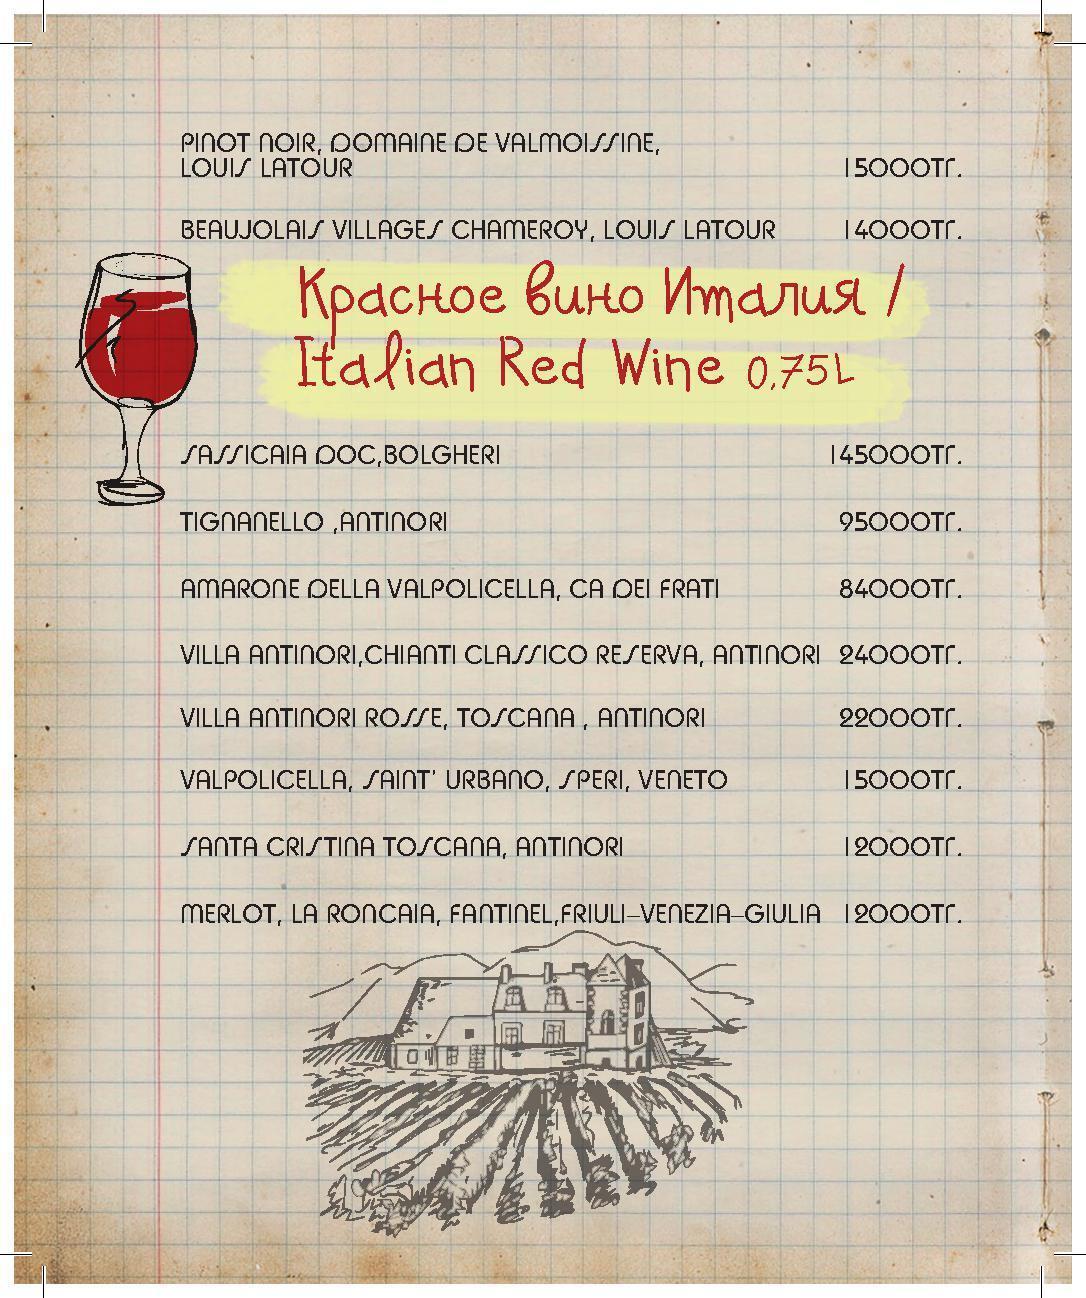 PINOT NOIR, DOMAINE DE VALMOISSINE,
LOUIS LATOUR 15000ТГ.
BEAUJOLAIS VILLAGES CHAMEROY, LOUIS LATOUR 14000ТГ.
Красное вино Италия /
Italian Red Wine 0,75L
SASSICAIA DOC,BOLGHERI 145000ТГ.
TIGNANELLO ,ANTINORI 95000ТГ.
AMARONE DELLA VALPOLICELLA, CA DEI FRATI 84000ТГ.
VILLA ANTINORI,CHIANTI CLASSICO RESERVA, ANTINORI 24000ТГ.
VILLA ANTINORI ROSSE, TOSCANA , ANTINORI 22000ТГ.
VALPOLICELLA, SAINT' URBANO, SPERI, VENETO 15000ТГ.
SANTA CRISTINA TOSCANA, ANTINORI 12000ТГ.
MERLOT, LA RONCAIA, FANTINEL,FRIULI-VENEZIA-GIULIA 12000ТГ.